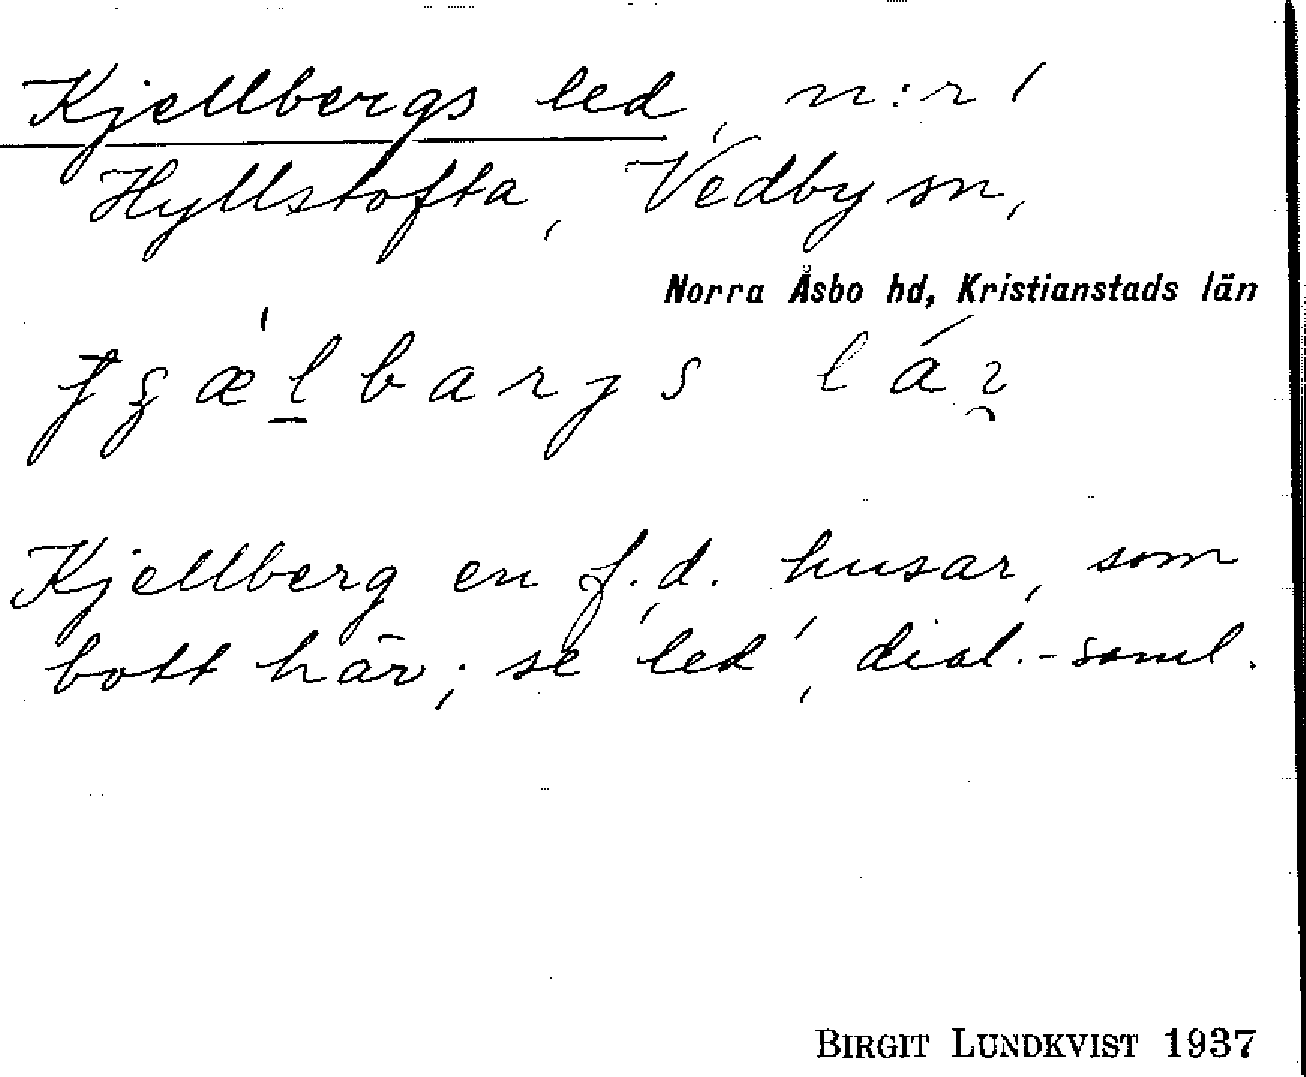 Kjellbergs led, n:r 1
Hyllstofta, Vedby sn,
Norra Åsbo hd, Kristianstads län
Kjellberg en f.d. husar, som
bott här; se led, dial.-saml.
BIRGIT LUNDKVIST 1937